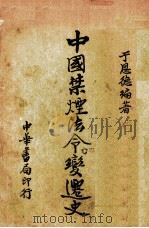 于恩德編著
中國禁煙法令變遷史
中華書局印行